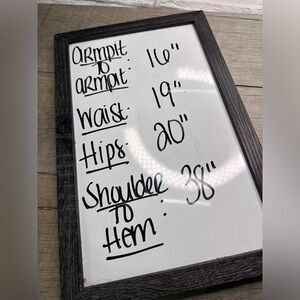 armpit
to
armpit: 16"
Waist: 19"
Hips: 20"
Shoulder
To
Hem: 38"